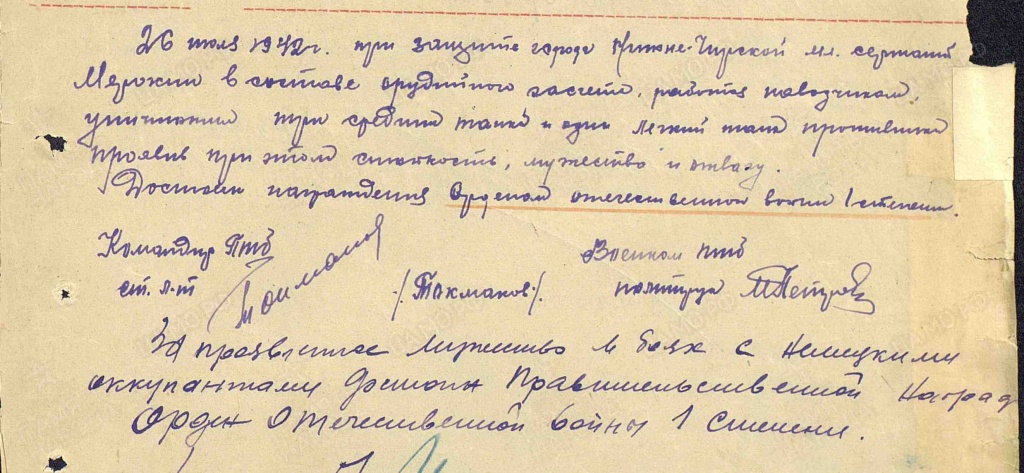 26 июля 1942г. при защите города Нижне-Чирской мл. сержант
в составе орудийного расчета, работая наводчиком,
уничтожил три средних танка и один легкий танк противника
проявив при этом стойкость, мужество и отвагу.
Достоин награждения Орденом отечественной войны 1 степени.
Командир ПТБ Военком ПТБ
ст. л-т Токмаков /Токмаков/. политрук
За проявленное мужество в боях с немецкими
оккупантами достоин Правительственной Наград
Орден Отечественной войны 1 степени.